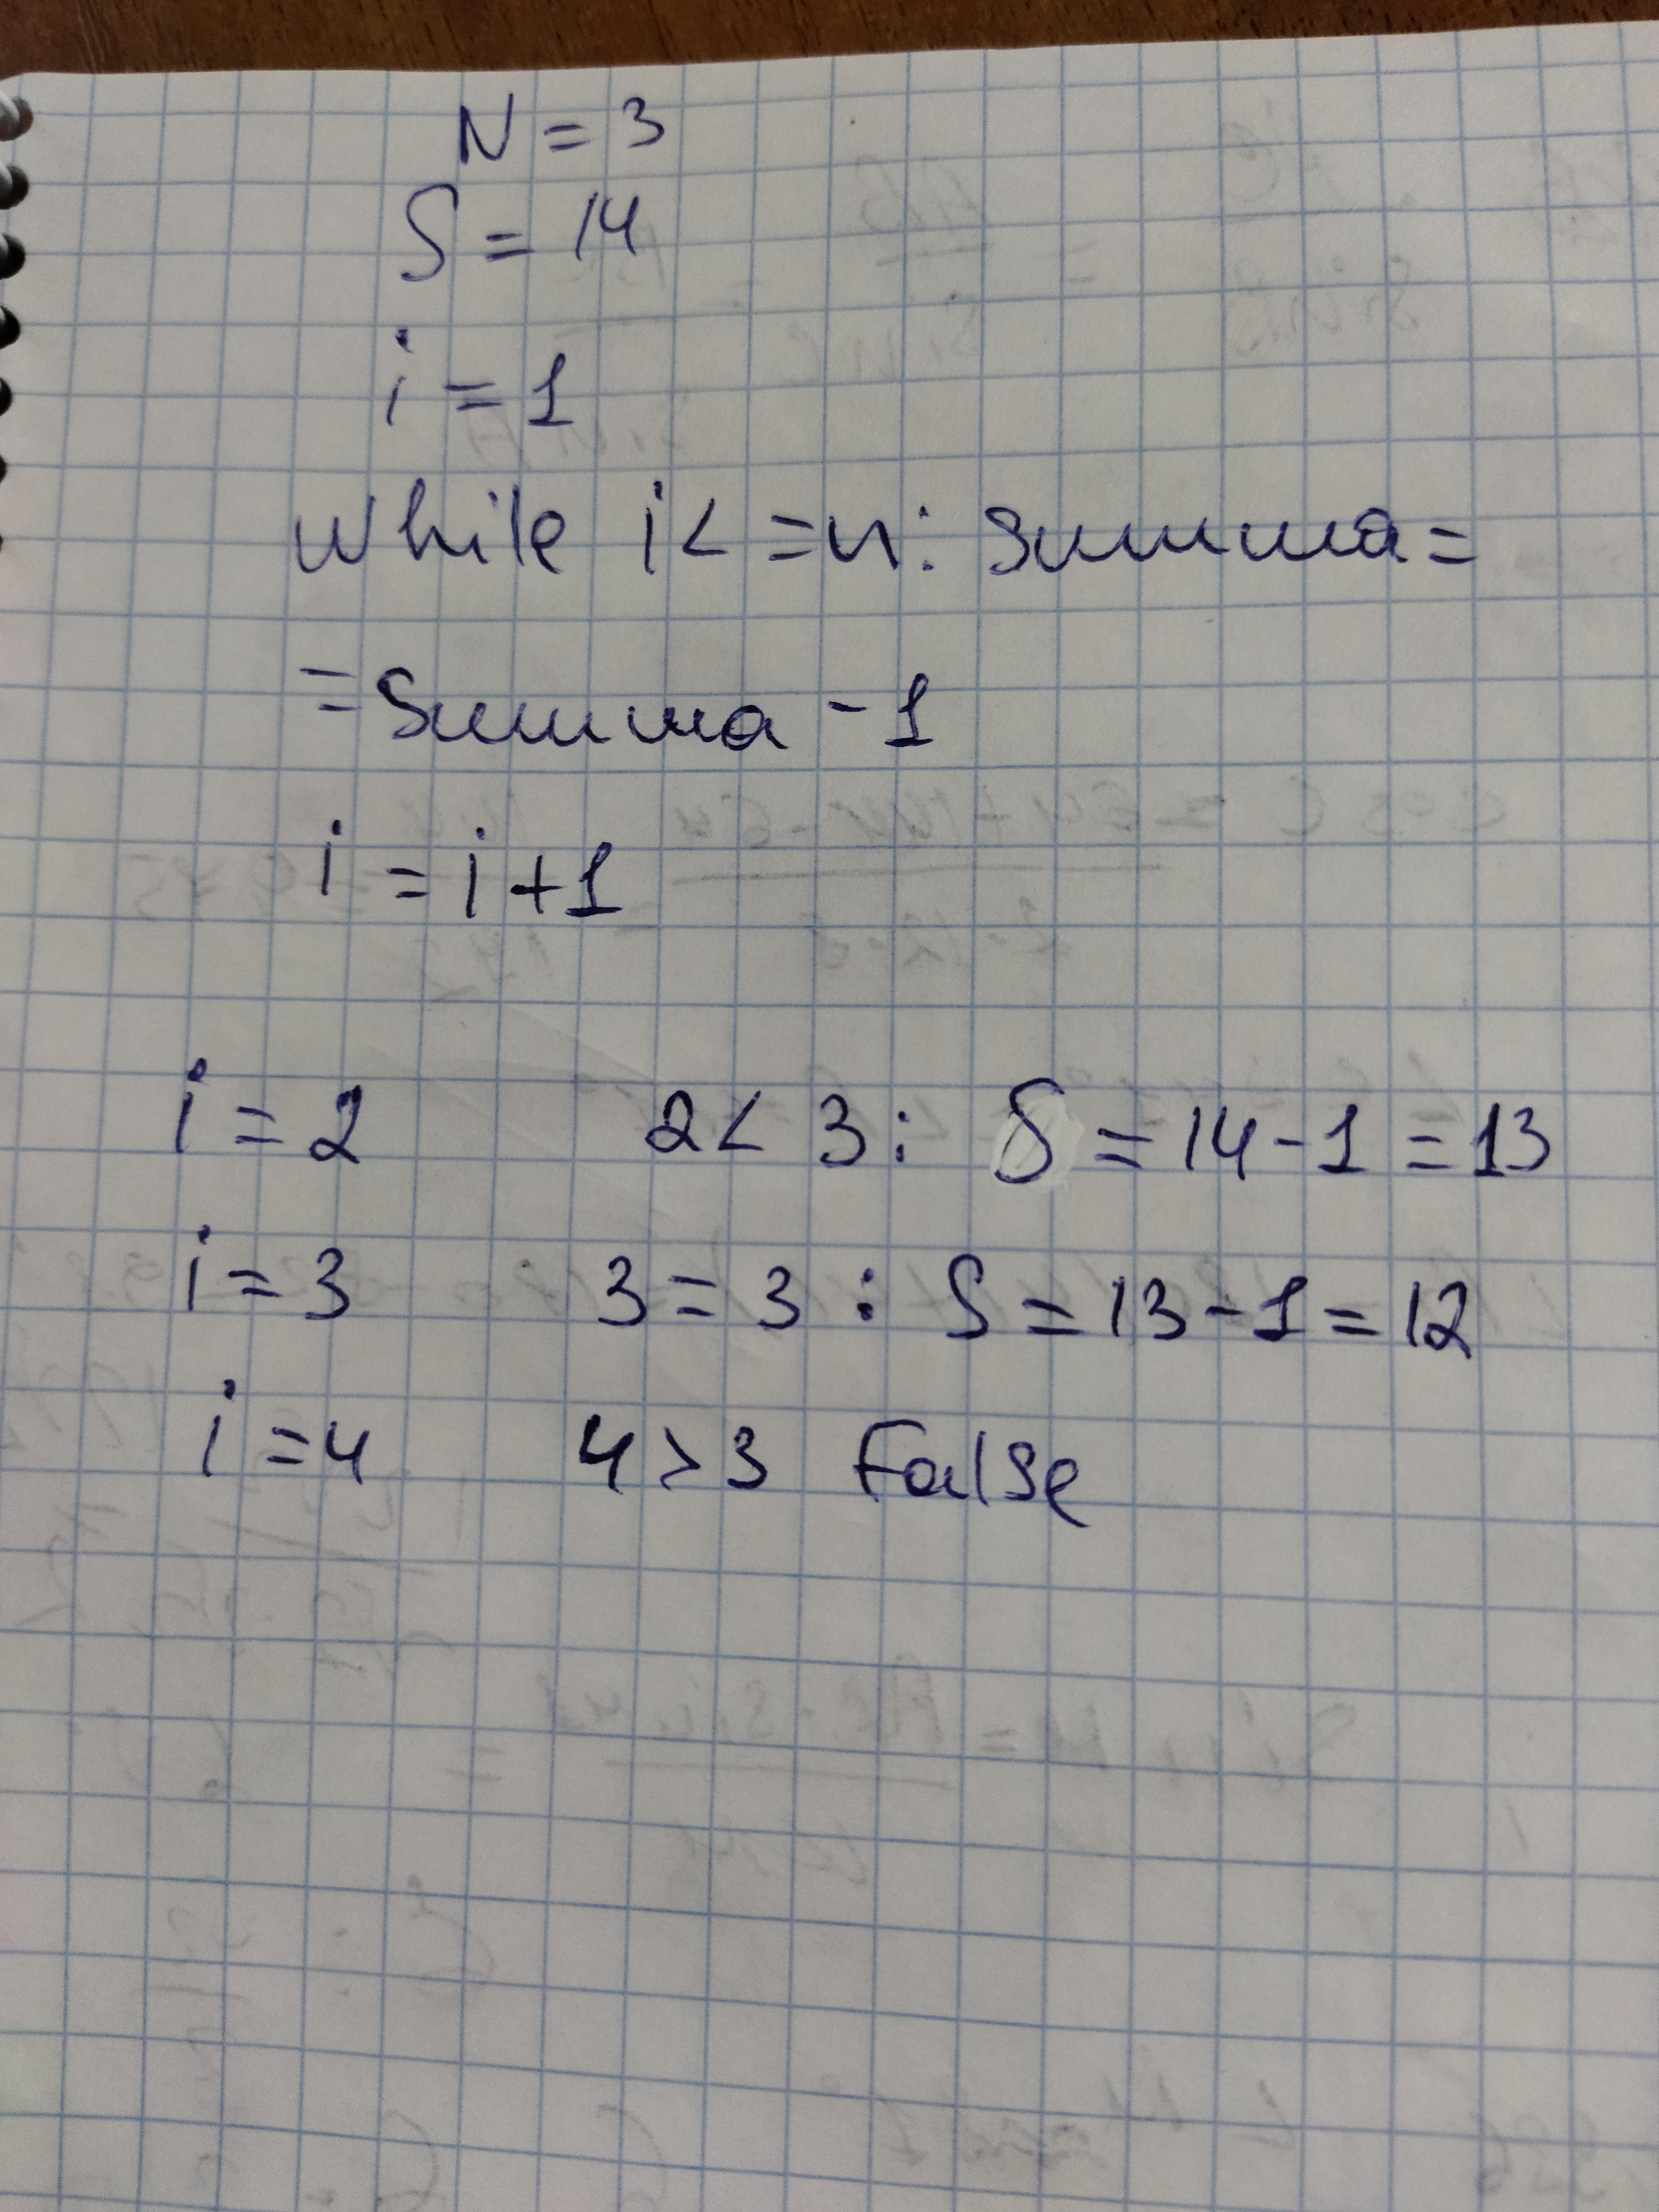 N = 3
S = 14
i = 1
while i < = n : summa =
= Summa - 1
i = i + 1
i = 2 2 < 3 : S = 14 - 1 = 13
i = 3 3 = 3 : S = 13 - 1 = 12
i = 4 4 > 3 False